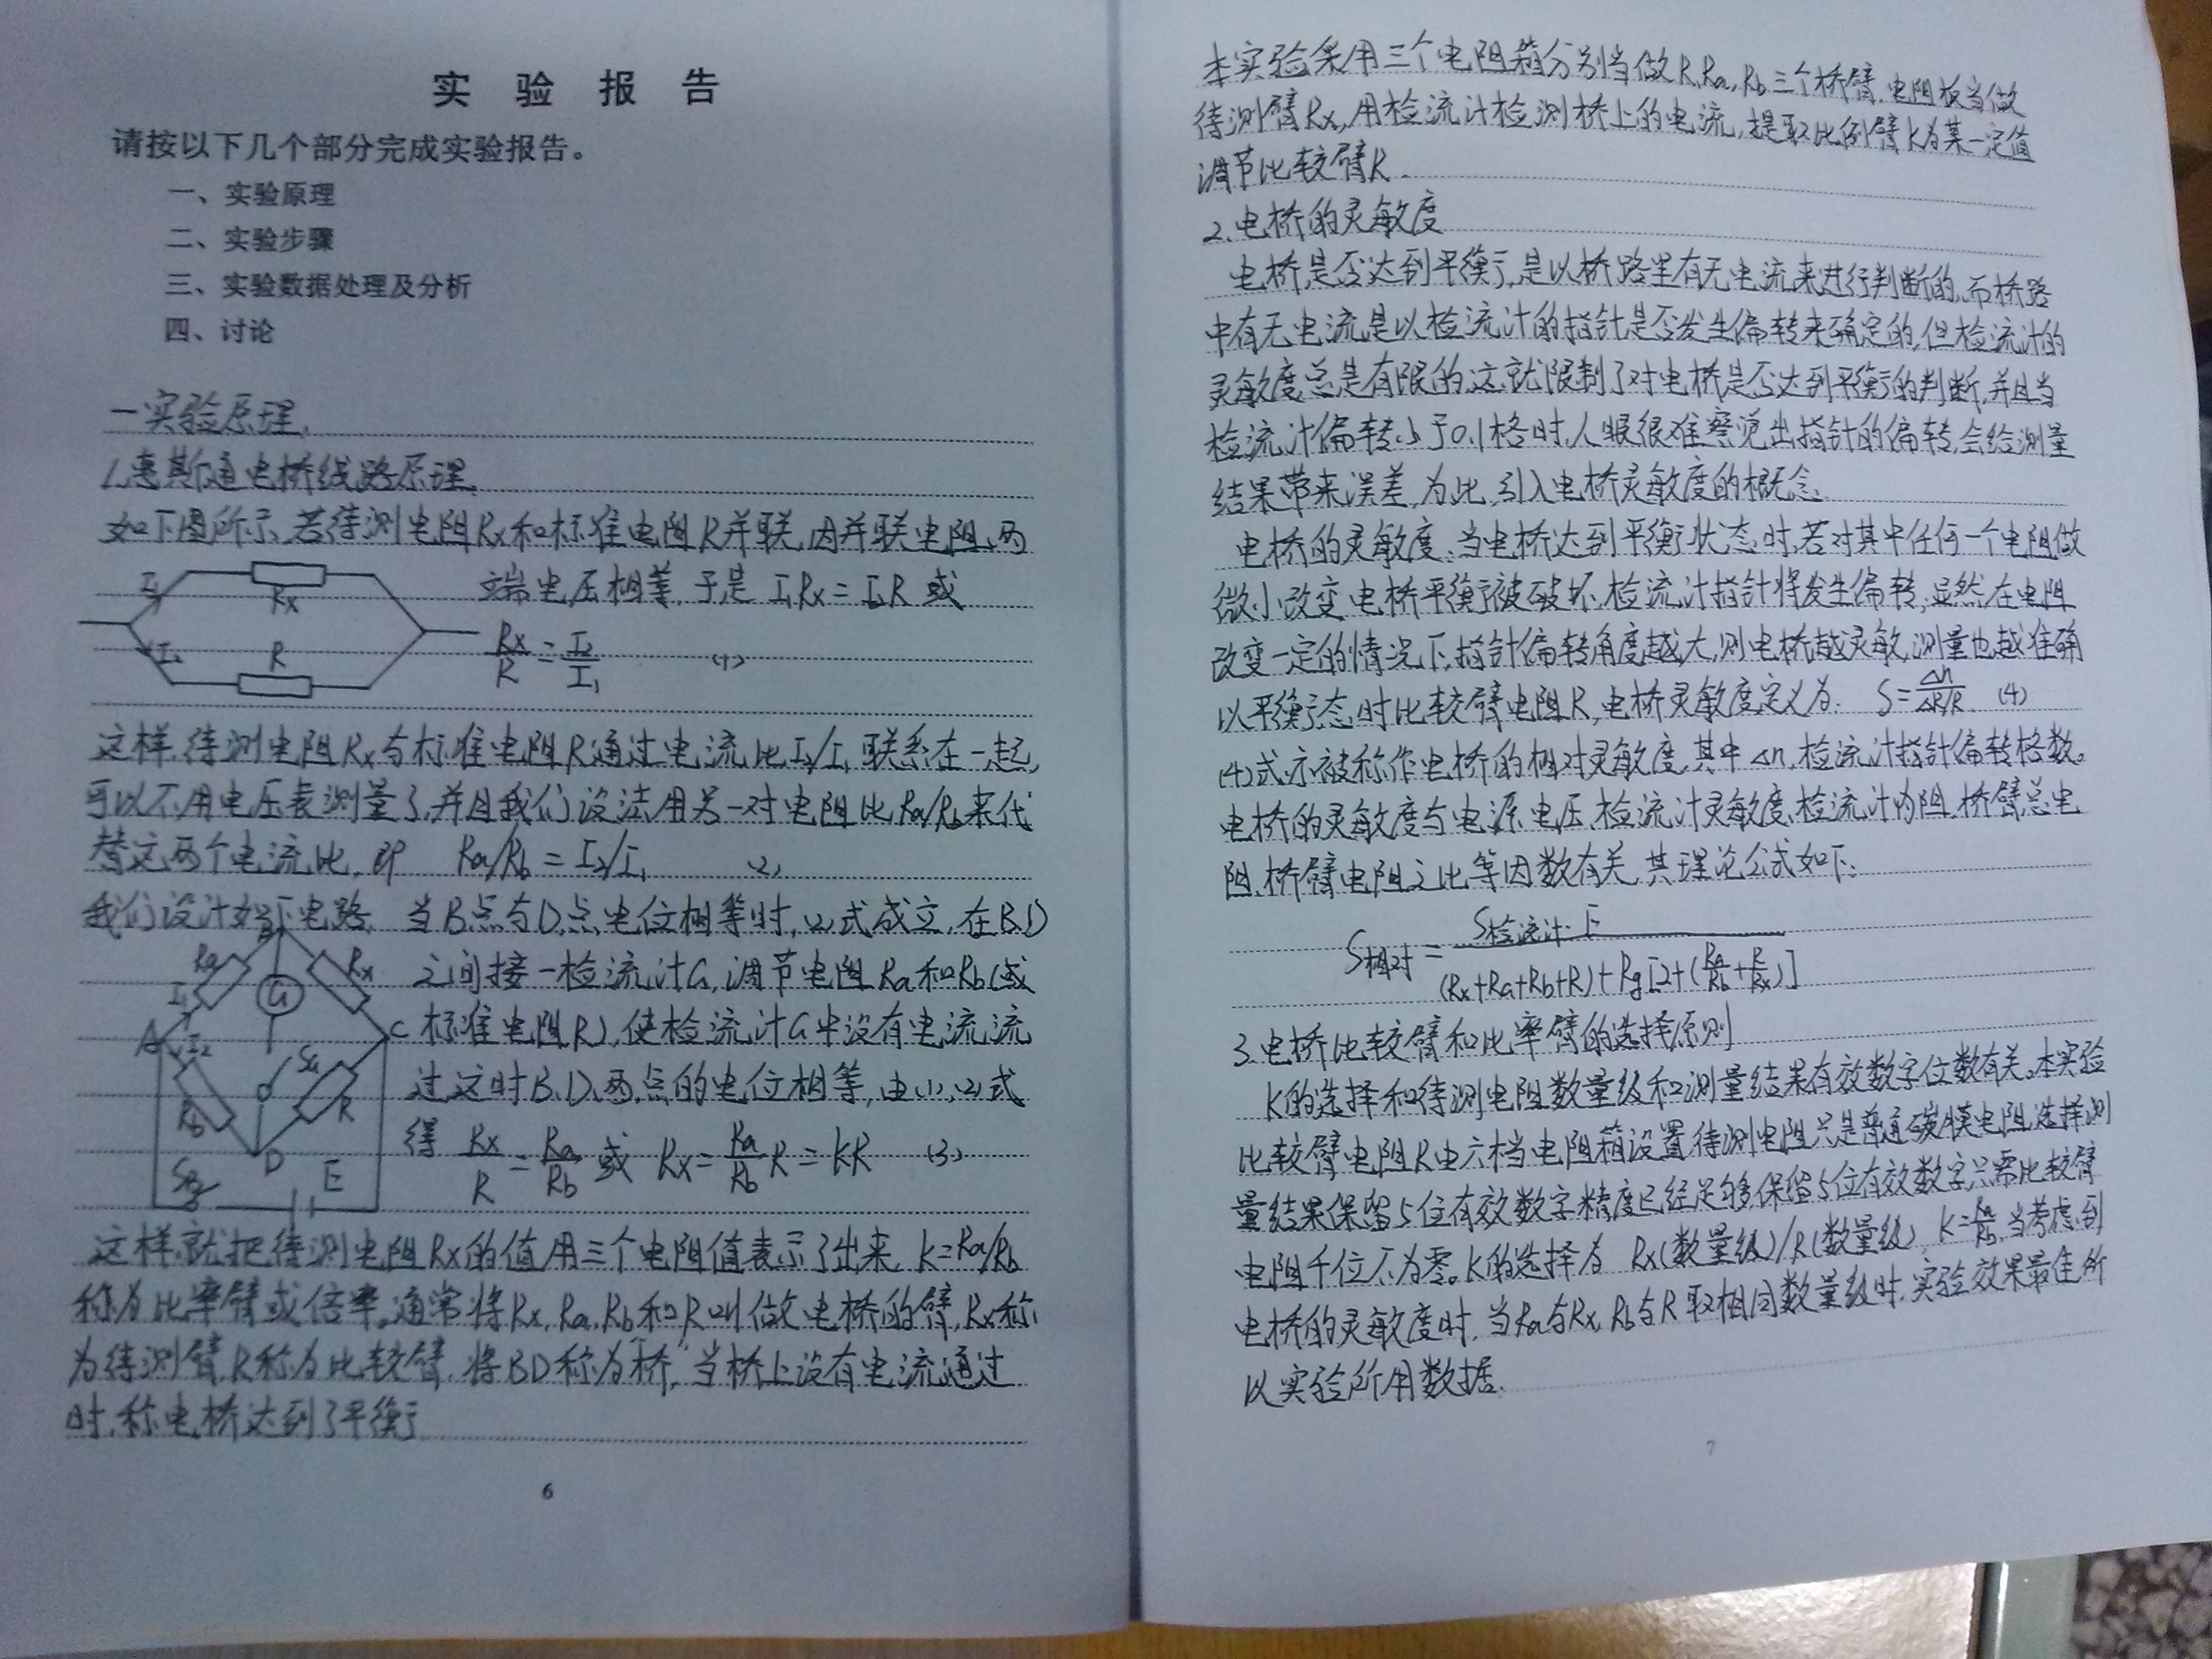 实 验 报 告
请按以下几个部分完成实验报告。
一、实验原理
二、实验步骤
三、实验数据处理及分析
四、讨论
一.实验原理.
1.惠斯通电桥线路原理.
如下图所示,若待测电阻Rx和标准电阻R并联,因并联电阻两
端电压相等,于是 I₁Rx=I₂R 或
I₁
Rx
I₂
R
Rx/R=I₂/I₁ (1)
这样,待测电阻Rx与标准电阻R通过电流比I₂/I₁联系在一起,
可以不用电压表测量了,并且我们设法用另一对电阻比Ra/Rb来代
替这两个电流比,即 Ra/Rb=I₂/I₁ (2)
我们设计如下电路. 当B点与D点电位相等时,(2)式成立,在B.D
之间接一检流计G,调节电阻Ra和Rb(或
标准电阻R),使检流计G中没有电流流
过,这时B.D.两点的电位相等,由(1),(2)式
得 Rx/R=Ra/Rb 或 Rx=Ra/Rb R=KR (3)
B
Ra
Rx
I₁
G
A
C
I₂
Rb
R
D
E
这样,就把待测电阻Rx的值用三个电阻值表示了出来,K=Ra/Rb
称为比率臂或倍率。通常将Rx,Ra,Rb和R叫做电桥的臂,Rx称
为待测臂,R称为比较臂,将BD称为“桥”,当桥上没有电流通过
时,称电桥达到了平衡
6
本实验采用三个电阻箱分别当做R,Ra,Rb三个桥臂,电阻板当做
待测臂Rx,用检流计检测桥上的电流,提取比例臂K为某一定值
调节比较臂R.
2.电桥的灵敏度
电桥是否达到平衡,是以桥路里有无电流来进行判断的,而桥路
中有无电流是以检流计的指针是否发生偏转来确定的,但检流计的
灵敏度总是有限的,这就限制了对电桥是否达到平衡的判断,并且当
检流计偏转小于0.1格时,人眼很难察觉出指针的偏转,会给测量
结果带来误差,为此,引入电桥灵敏度的概念.
电桥的灵敏度:当电桥达到平衡状态时,若对其中任何一个电阻做
微小改变,电桥平衡被破坏,检流计指针将发生偏转,显然,在电阻
改变一定的情况下,指针偏转角度越大,则电桥越灵敏,测量也越准确
以平衡态时比较臂电阻R,电桥灵敏度定义为: S=Δn/(ΔR/R) (4)
(4)式亦被称作电桥的相对灵敏度,其中Δn,检流计指针偏转格数。
电桥的灵敏度与电源电压,检流计灵敏度,检流计内阻,桥臂总电
阻,桥臂电阻之比等因数有关,其理论公式如下:
S相对=S检流计·E/((Rx+Ra+Rb+R)+Rg[2+(Ra/Rb+R/Rx)])
3.电桥比较臂和比率臂的选择原则
K的选择和待测电阻数量级和测量结果有效数字位数有关。本实验
比较臂电阻R由六档电阻箱设置,待测电阻只是普通碳膜电阻,选择测
量结果保留5位有效数字精度已经足够,保留5位有效数字,只需比较臂
电阻千位不为零。K的选择为 Rx(数量级)/R(数量级), K=Ra/Rb,当考虑到
电桥的灵敏度时,当Ra与Rx,Rb与R取相同数量级时,实验效果最佳,所
以实验所用数据.
7